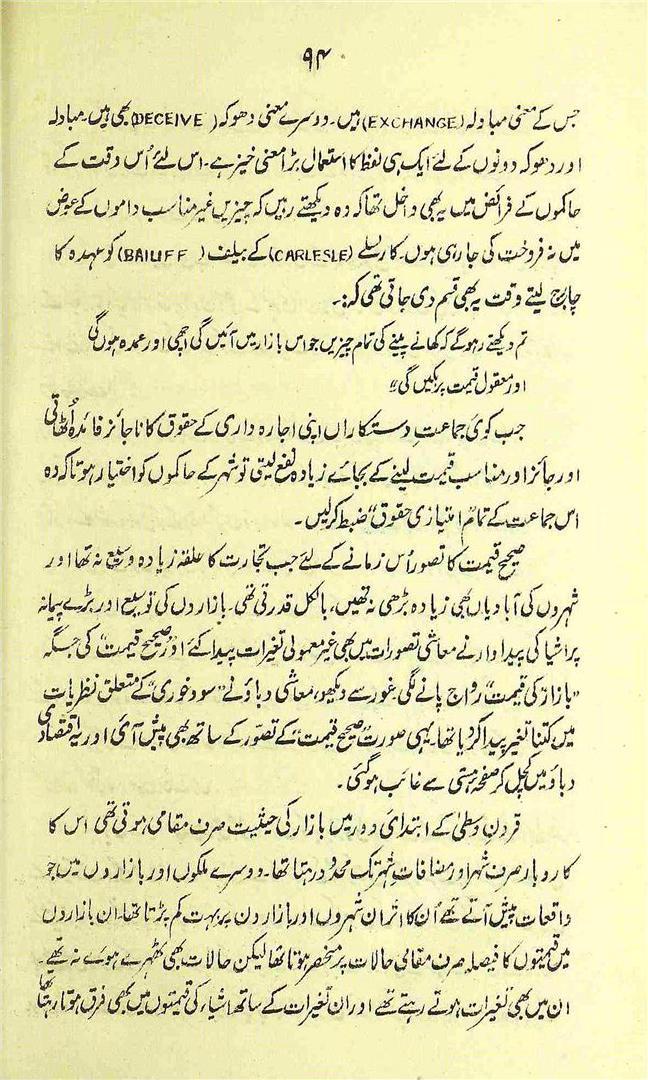 ۹۴
جس کے معنی مبادلہ (EXCHANGE) ہیں۔ دوسرے معنی دھوکہ (DECEIVE) بھی ہیں۔ مبادلہ
اور دھوکہ دونوں کے لئے ایک ہی لفظ کا استعمال بڑا معنی خیز ہے۔ اس لئے اُس وقت کے
حاکموں کے فرائض میں یہ بھی داخل تھا کہ وہ دیکھتے رہیں کہ چیزیں غیر مناسب داموں کے عوض
میں نہ فروخت کی جا رہی ہوں۔ کارلسلے (CARLESLE) کے بیلف (BAILIFF) کو عہدہ کا
چارج لیتے وقت یہ بھی قسم دی جاتی تھی کہ:۔
تم دیکھتے رہو گے کہ کھانے پینے کی تمام چیزیں جو اس بازار میں آئیں گی اچھی اور عمدہ ہوں گی
اور معقول قیمت پر بکیں گی"
جب کوئی جماعتِ دستکاراں اپنی اجارہ داری کے حقوق کا ناجائز فائدہ اُٹھاتی
اور جائز اور مناسب قیمت لینے کے بجائے زیادہ نفع لیتی تو شہر کے حاکموں کو اختیار ہوتا کہ وہ
اس جماعت کے تمام "امتیازی حقوق" ضبط کر لیں۔
صحیح قیمت کا تصور اُس زمانے کے لئے جب تجارت کا حلقہ زیادہ وسیع نہ تھا اور
شہروں کی آبادیاں بھی زیادہ بڑھی نہ تھیں، بالکل قدرتی تھی۔ بازاروں کی توسیع اور بڑے پیمانہ
پر اشیا کی پیداوار نے معاشی تصورات میں بھی غیر معمولی تغیرات پیدا کئے اور "صحیح قیمت" کی جگہ
"بازار کی قیمت" رواج پانے لگی۔ غور سے دیکھو، معاشی دباؤ نے "سود خوری" کے متعلق نظریات
میں کتنا تغیر پیدا کر دیا تھا۔ یہی صورت "صحیح قیمت" کے تصوّر کے ساتھ بھی پیش آئی اور یہ اقتصادی
دباؤ میں کچل کر صفحہ ہستی سے غائب ہو گئی۔
قرون وسطیٰ کے ابتدائی دور میں بازار کی حیثیت صرف مقامی ہوتی تھی اس کا
کاروبار صرف شہر اور مضافاتِ شہر تک محدود رہتا تھا۔ دوسرے ملکوں اور بازاروں میں جو
واقعات پیش آتے تھے اُن کا اثر ان شہروں اور بازاروں پر بہت کم پڑتا تھا۔ ان بازاروں
میں قیمتوں کا فیصلہ صرف مقامی حالات پر منحصر ہوتا تھا لیکن حالات بھی ٹھہرے ہوئے نہ تھے۔
ان میں بھی تغیرات ہوتے رہتے تھے اور ان تغیرات کے ساتھ اشیاء کی قیمتوں میں بھی فرق ہوتا رہتا تھا